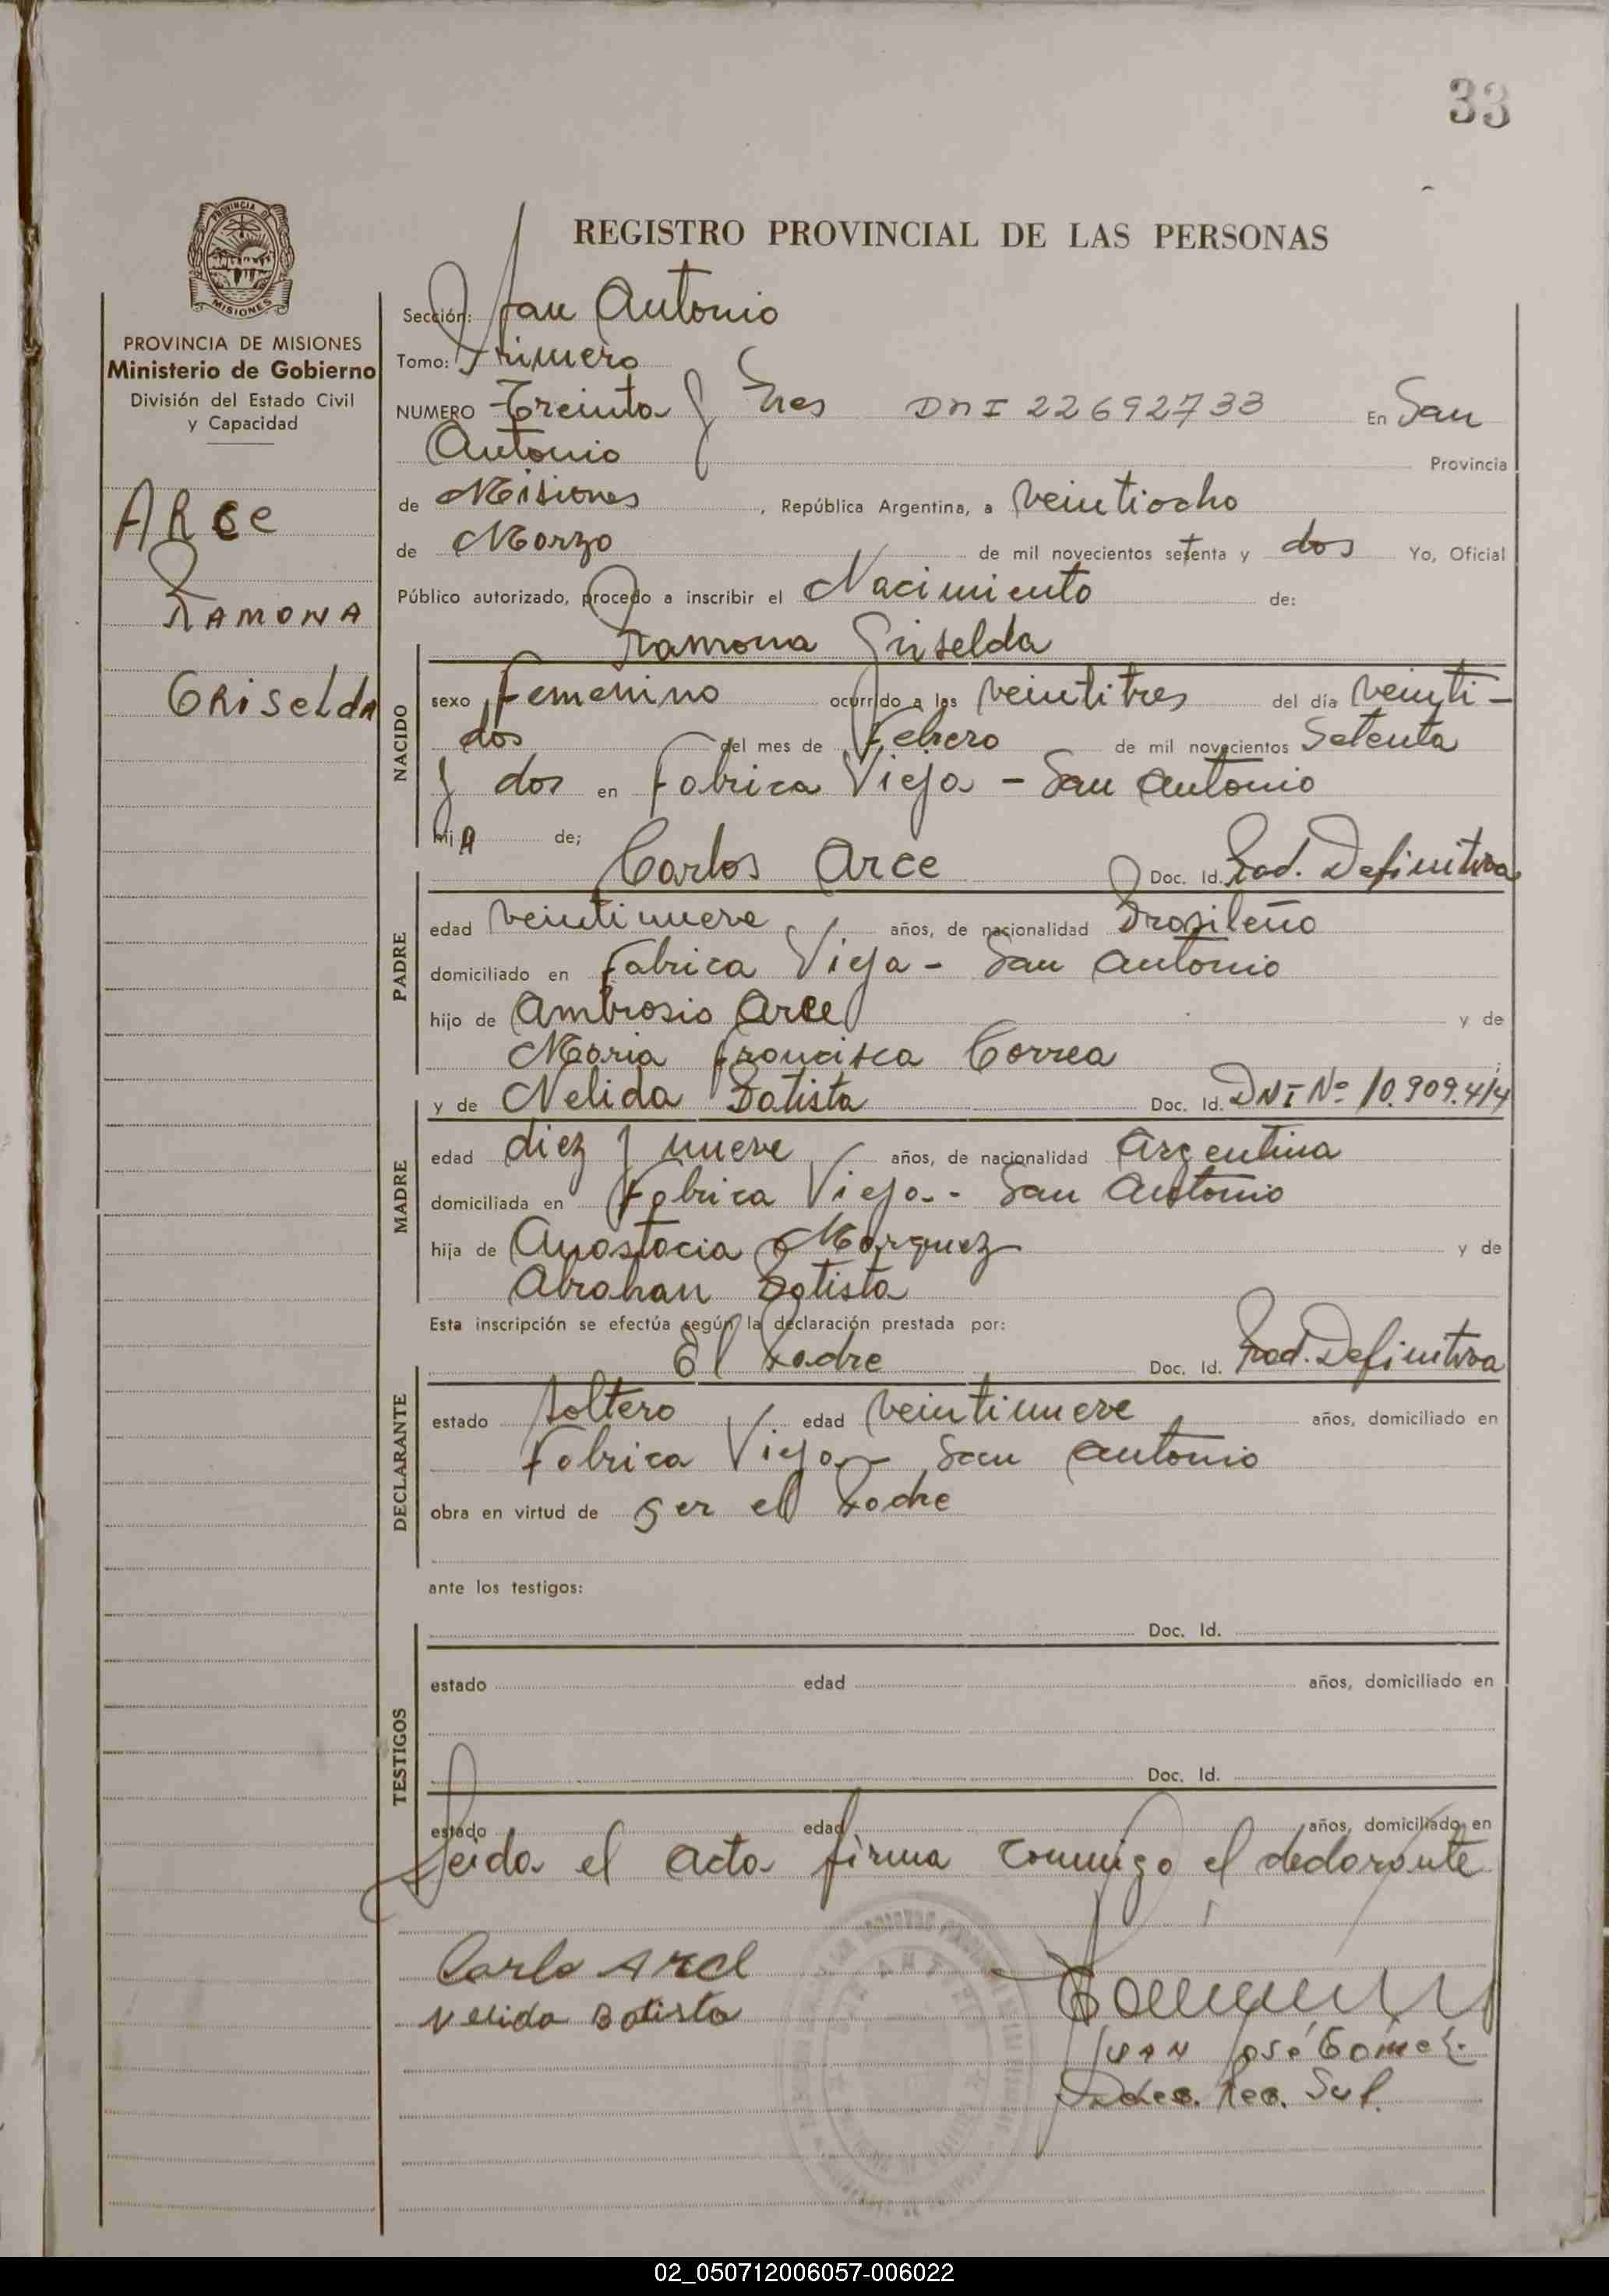 33
PROVINCIA DE MISIONES
REGISTRO PROVINCIAL DE LAS PERSONAS
PROVINCIA DE MISIONES
Ministerio de Gobierno
División del Estado Civil
y Capacidad
ARce
RAMONA
GRiseLda
Sección: San Antonio
Tomo: Primero
NUMERO Treinta y Tres DNI 22692733 En San
Antonio Provincia
de Misiones, República Argentina, a veintiocho
de Marzo de mil novecientos setenta y dos Yo, Oficial
Público autorizado, procedo a inscribir el Nacimiento de:
Ramona Griselda
NACIDO
sexo Femenino ocurrido a las veintitres del día veinti-
dos del mes de Febrero de mil novecientos Setenta
y dos en Fabrica Vieja - San Antonio
hijA de;
Carlos Arce Doc. Id. Rad. Definitiva
PADRE
edad veintinueve años, de nacionalidad Brasileño
domiciliado en Fabrica Vieja - San Antonio
hijo de Ambrosio Arce y de
Maria Francisca Correa
y de Nelida Batista Doc. Id. DNI Nº 10.909.414
MADRE
edad diez y nueve años, de nacionalidad Argentina
domiciliada en Fabrica Vieja - San Antonio
hija de Anastacia Marquez y de
Abrahan Batista
Esta inscripción se efectúa según la declaración prestada por:
El Padre Doc. Id. Rad. Definitiva
DECLARANTE
estado soltero edad veintinueve años, domiciliado en
Fabrica Vieja - San Antonio
obra en virtud de ser el Padre
ante los testigos:
Doc. Id.
TESTIGOS
estado edad años, domiciliado en
Doc. Id.
estado edad años, domiciliado en
Leida el acta firma conmigo el declarante
Carlo Arce
Nelida Batista
Juan José Gomez
02_050712006057-006022